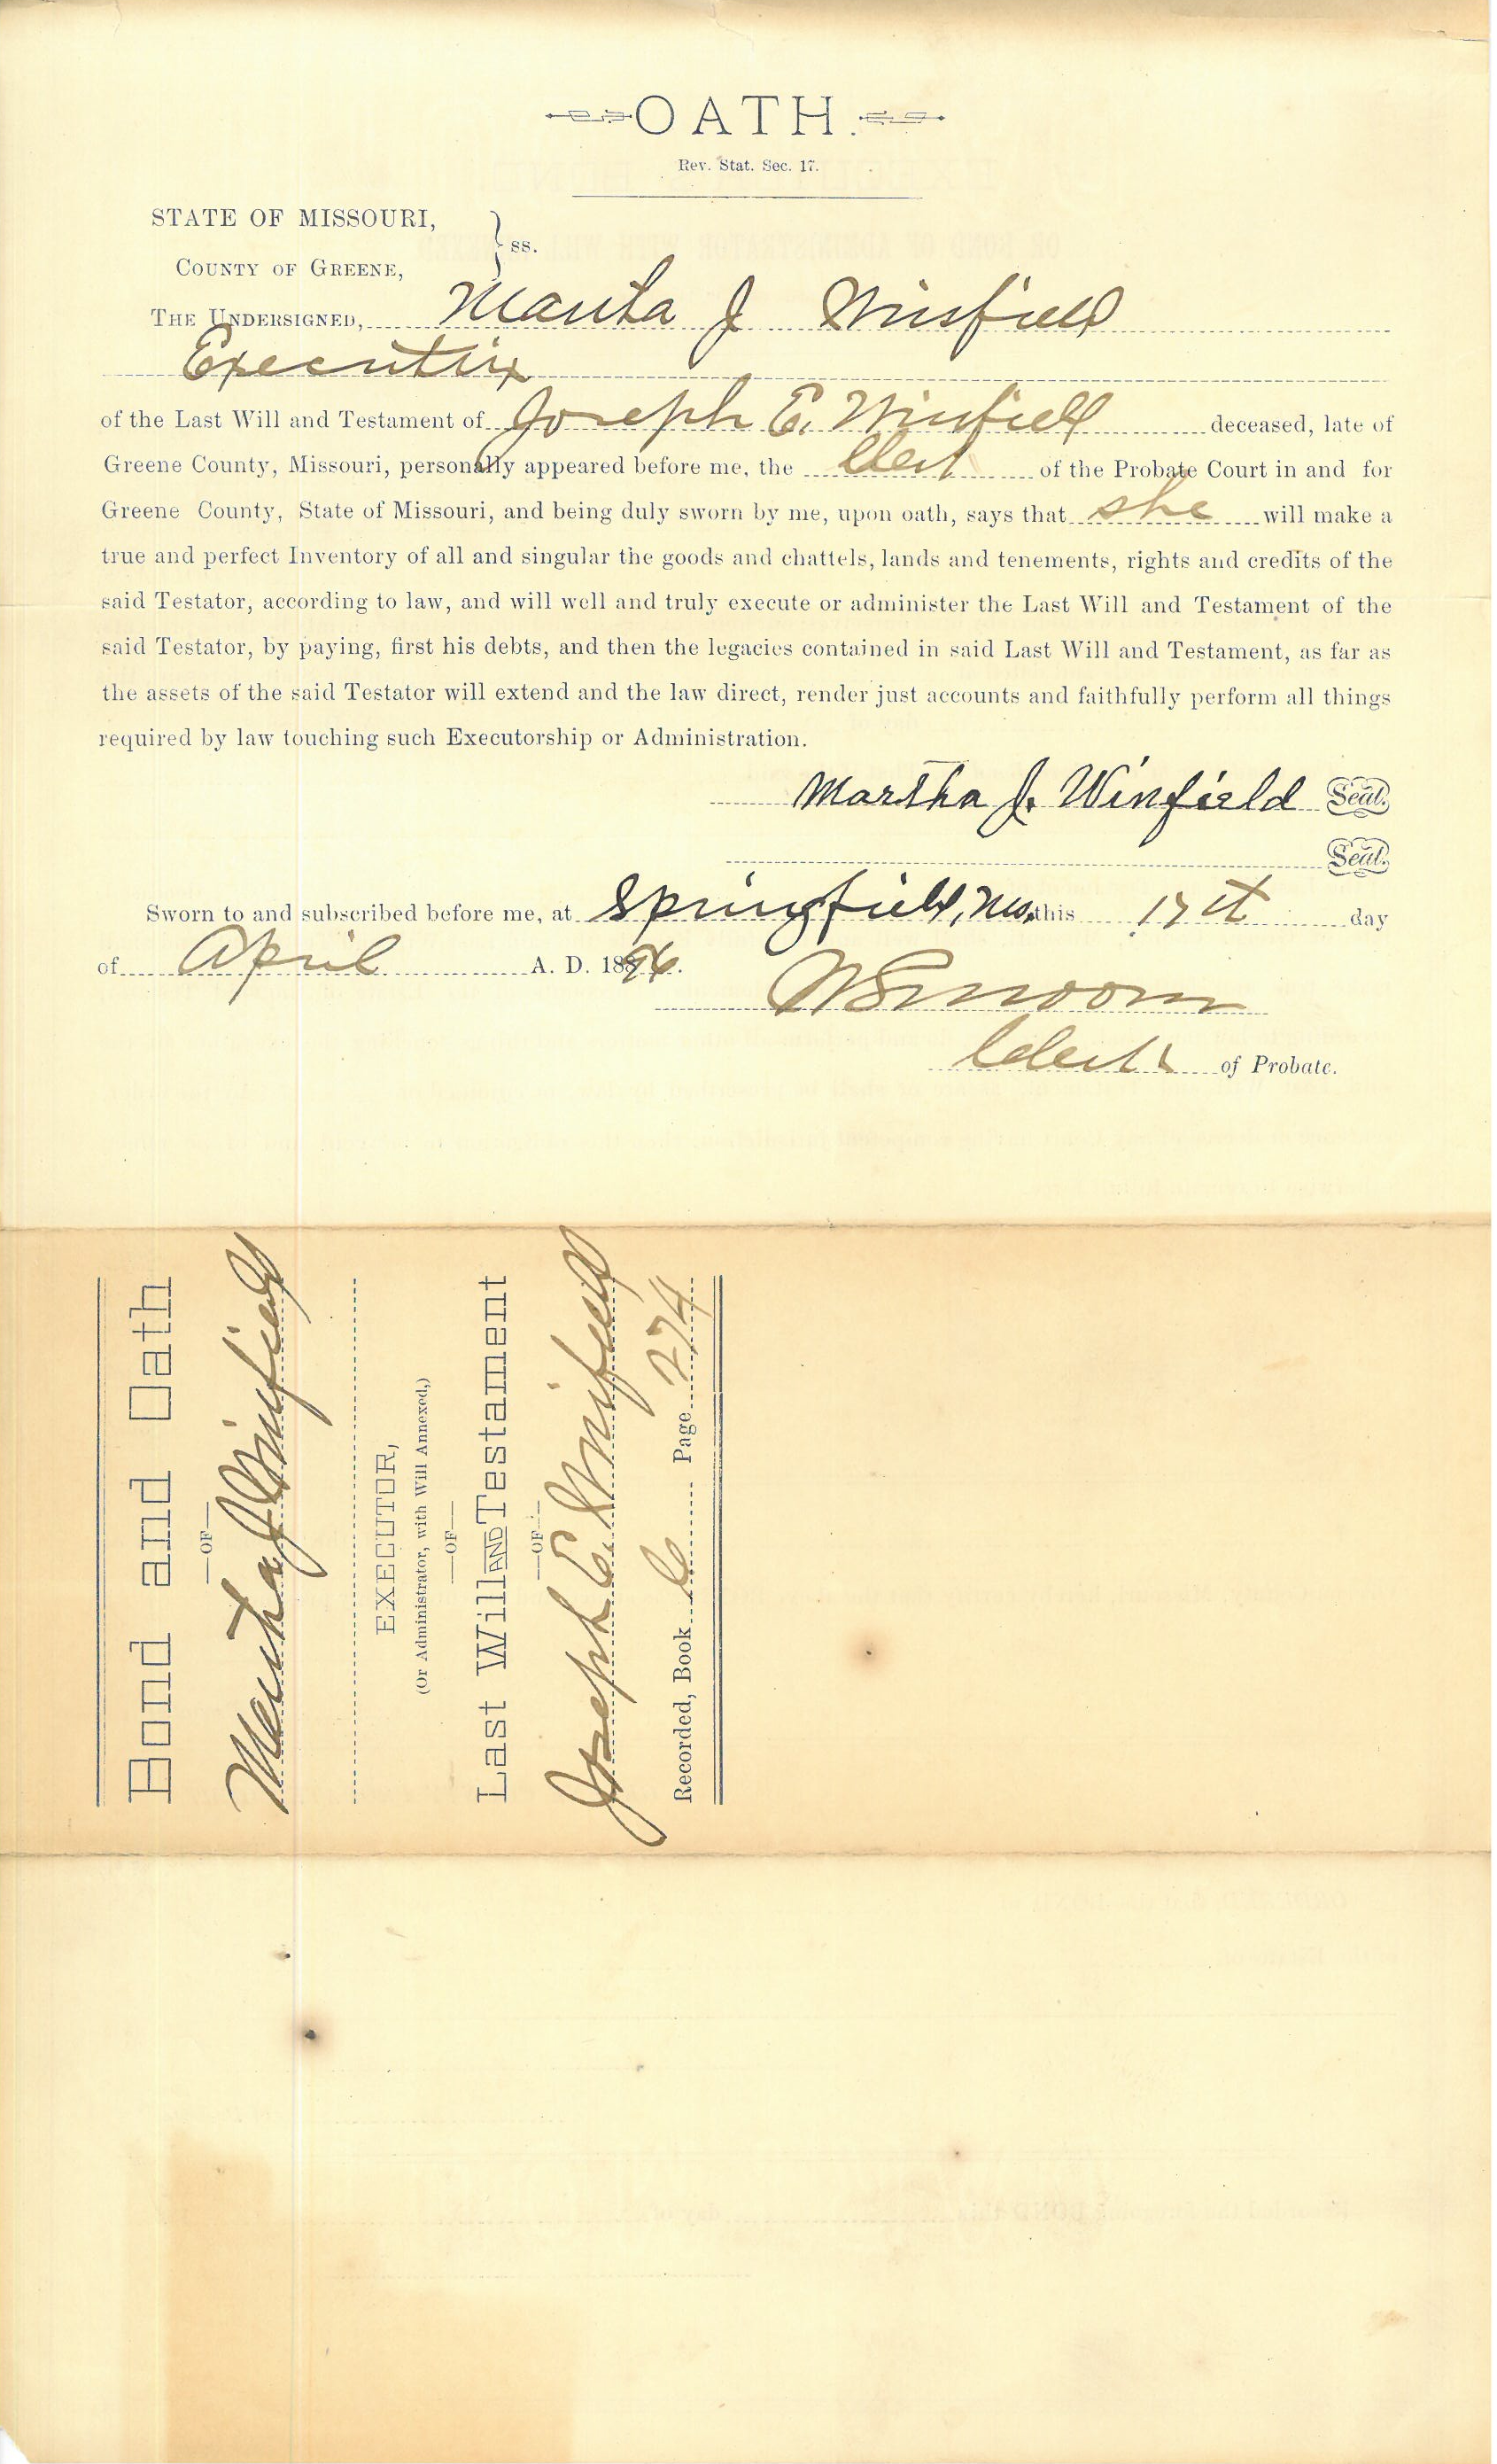 OATH.
Rev. Stat. Sec. 17.
STATE OF MISSOURI,
COUNTY OF GREENE,
ss.
THE UNDERSIGNED, Martha J Winfield
Executrix
of the Last Will and Testament of Joseph E. Winfield deceased, late of
Greene County, Missouri, personally appeared before me, the Clerk of the Probate Court in and for
Greene County, State of Missouri, and being duly sworn by me, upon oath, says that she will make a
true and perfect Inventory of all and singular the goods and chattels, lands and tenements, rights and credits of the
said Testator, according to law, and will well and truly execute or administer the Last Will and Testament of the
said Testator, by paying, first his debts, and then the legacies contained in said Last Will and Testament, as far as
the assets of the said Testator will extend and the law direct, render just accounts and faithfully perform all things
required by law touching such Executorship or Administration.
Martha J. Winfield Seal.
Seal.
Sworn to and subscribed before me, at Springfield, Mo. this 17th day
of April A. D. 1896.
Clerk of Probate.
Bond and Oath
—OF—
Martha J Winfield
EXECUTOR,
(Or Administrator, with Will Annexed,)
—OF—
Last Will AND Testament
—OF—
Joseph E. Winfield
Recorded, Book Page 274